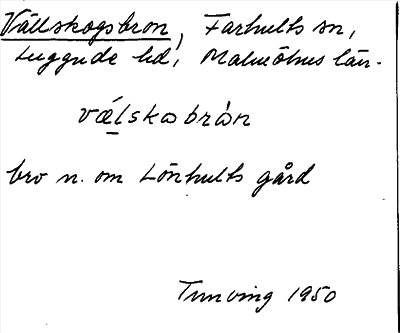 Vällskogsbron, Farhults sn,
Luggude hd, Malmöhus län.
vǽlskabrån
bro n. om Lönhults gård
Tunving 1950